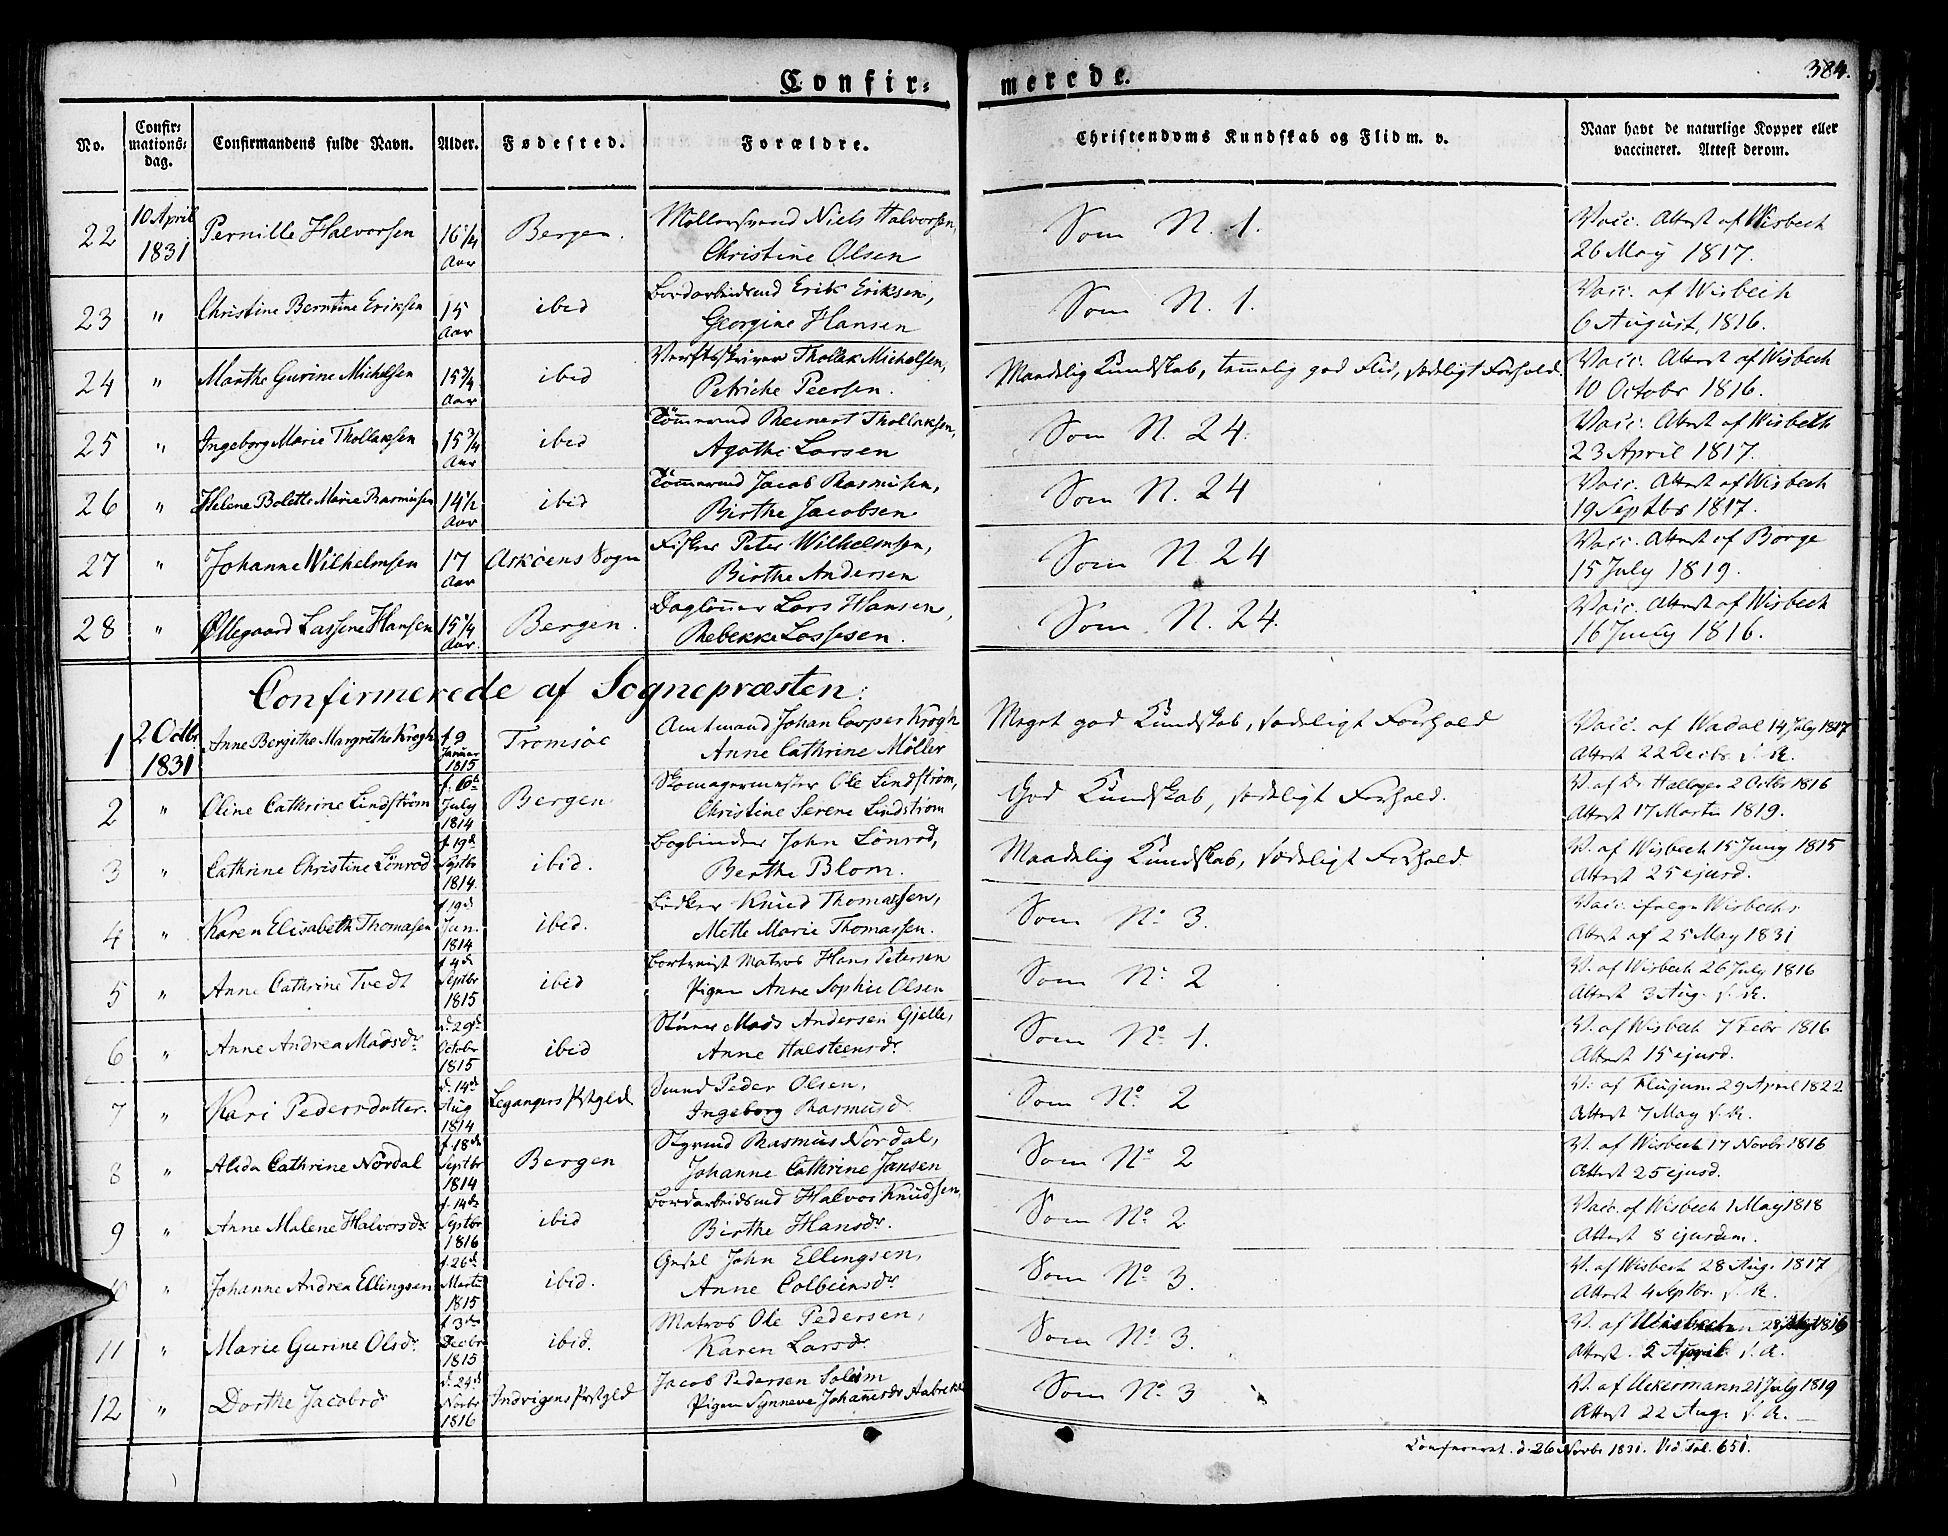 Confir=
merede.
384.
No.
Confir=
mations=
dag.
Confirmandens fulde Navn.
Alder.
Fødested.
Forældre.
Christendoms Kundskab og Flid m. v.
Naar havt de naturlige Kopper eller
vaccineret. Attest derom.
22 10 April 1831 Pernille Halvorsen 16 1/4 Aar Bergen. Niels Halvorsen, Som N. 1. Vacc. Attest af Wisbech
Christine Olsen 26 May 1817.
23 " Christine Berntine Eriksen 15 Aar ibid Bordarbeidsmd Erik Eriksen, Som N. 1. Vacc. af Wisbech
Georgine Hansen 6 August 1816.
24 " Marthe Gurine Michelsen 15 3/4 Aar ibid Verftsskriver Thollak Michelsen, Maadelig Kundskab, tammelig god Flid, sædeligt Forhold. Vacc. Attest af Wisbech
Petriche Peersen. 10 Octobr 1816.
25 " Ingeborg Marie Thollaksen 15 3/4 Aar ibid Tømmermd Reinert Thollaksen, Som N. 24. Vacc. Attest af Wisbech
Agathe Larsen 23 April 1817.
26 " Helene Bolette Marie Rasmusen 14 1/2 Aar ibid Tømmermd Jacob Rasmusen, Som N. 24 Vacc. Attest af Wisbech
Birthe Jacobsen 19 Septbr 1817.
27 " Johanne Wilhelmsen 17 Aar Askøens Sogn Fisker Peter Wilhelmsen, Som N. 24 Vacc. Attest af Borge
Birthe Andersen 15 July 1819.
28 " Øllegaard Lassene Hansen 15 3/4 Aar. Bergen. Dagløner Lars Hansen, Som N. 24. Vacc. Attest af Wisbech
Rebekke Lassesen. 1816.
Confirmerede af Sognepræsten:
1 2 Octbr 1831 Anne Bergithe Margrethe Krogh f. 9 Januar 1815 Tromsøe Amtmand Johan Casper Krogh Meget god Kundskab, sædeligt Forhold Vacc. af Wadal 14 July 1817
Anne Cathrine Møller Attest 22 Decbr s. A.
2 " Oline Cathrine Lindstrøm July 1814 Bergen Skomagermester Ole Lindstrøm, God Kundskab, sædeligt Forhold. V. af Dr 2 Octbr 1816
Christine Serene Lindstrøm Attest 17 Martii 1819.
3 " Cathrine Christine Lønrod f. 19d Septbr 1814. ibid. Bogbinder John Lønrod, Maadelig Kundskab, sædeligt Forhold V. af Wisbech 15 Juny 1815
Berthe Blom. Attest 25 ejusd.
4 " Karen Elisabeth Thomasen f. 19d Jan. 1814 ibid. Bødker Knud Thomassen, Som No. 3. Vacc. ifølge Wisbechs
Mette Marie Thomassen. Attest af 25 May 1831
5 " Anne Cathrine Tvedt f. 4d Septbr 1815 ibid Bortreist Matros Hans Petersen Som No. 2 V. af Wisbech 26 July 1816
Pigen Anne Sophie Olsen Attest 3 Aug. s. A.
6 " Anne Andrea Madsdr d. 29d Octobr 1815 ibid Mads Andersen Gjelle, Som No. 1. V. af Wisbech 7 Febr 1816
Anne Halsteensdr Attest 15 ejusd.
7 " Kari Pedersdatter d. 14d Aug 1814 Legangers Prstgld Peder Olsen, Som No. 2 V. af 29 April 1822
Ingeborg Rasmusdr Attest 7 May s. A.
8 " Alida Cathrine Nordal f. 18d Septbr 1814 Bergen Rasmus Nordal, Som No. 2 V. af Wisbech 17 Novbr 1816
Johanne Cathrine Jansen Attest 25 ejusd.
9 " Anne Malene Halvorsdr f. 14d Septbr 1816 ibid Bordarbeidsmd Halvor Knudsen, Som No. 2 Vacc. af Wisbech 1 May 1818
Birthe Hansdr. Attest 8 ejusdem.
Johanne Andrea Ellingsen f. 26d Martii 1815 ibid. John Ellingsen, Som No. 3. V. af Wisbech 28 Aug. 1817
Anne Colbeinsdr Attest 4 Septbr. s. A.
11 " Marie Gurine Olsdr. f. 3d Decbr 1815 ibid. Matros Ole Pedersen, Som No. 3. V. af
Karen Larsdr Attest s. A.
12 " Dorthe Jacobsd d. 24d Novbr 1816 Indvigens Prstgld Jacob Pedersen Soleim Som No. 3 V. af Uckermann 21 July 1819
Pigen Synneve Attest 22 Aug. s. A.
d. 26 Novbr 1831. Vid. Fol. 651.